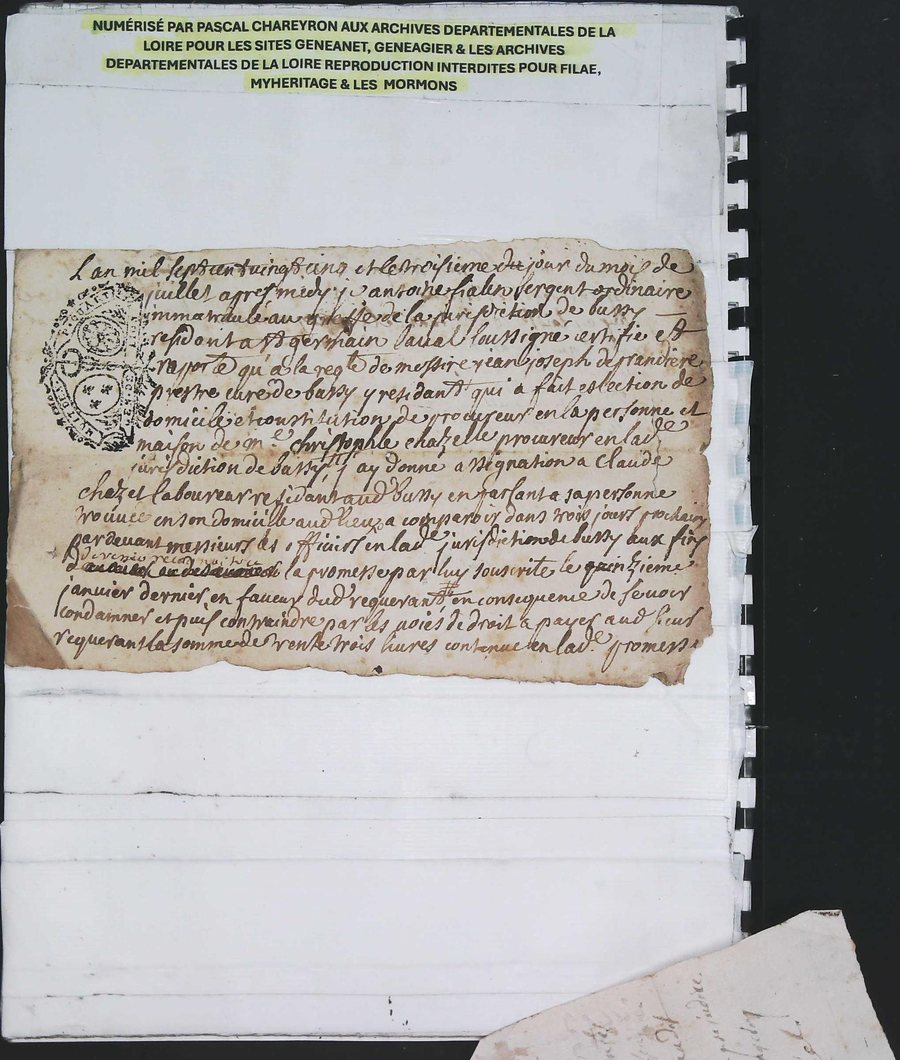 NUMÉRISÉ PAR PASCAL CHAREYRON AUX ARCHIVES DEPARTEMENTALES DE LA
LOIRE POUR LES SITES GENEANET, GENEAGIER & LES ARCHIVES
DEPARTEMENTALES DE LA LOIRE REPRODUCTION INTERDITES POUR FILAE,
MYHERITAGE & LES MORMONS
Lan mil sept cent vingt cinq et le troisieme du jour du mois de
juillet apres midy je antoine fialin sergent ordinaire
immatriculé au greffe de la jurisdiction de bussy
residant a St germain laval soussigné certifie et
raporte qu'a la reqte de messire jean joseph degrandiere
prestre curé de bussy y residant qui a fait eslection de
domicile et constitution de procureur en la personne et
maison de me christophle chazelle procureur en lade
jurisdiction de bussy j'ay donné assignation a Claude
chazet laboureur residant aud bussy en parlant a sa personne
trouvée en son domicille aud lieu a comparoir dans trois jours prochains
pardevant messieurs les officiers en lade jurisdiction de bussy aux fins
de venir reconnoitre
la promesse par luy souscrite le quinzieme
janvier dernier en faveur dud requerant en consequence de se voir
condamner et puis contraindre par les voies de droit a payer aud sieur
requerant la somme de trente trois livres contenue en lade promesse